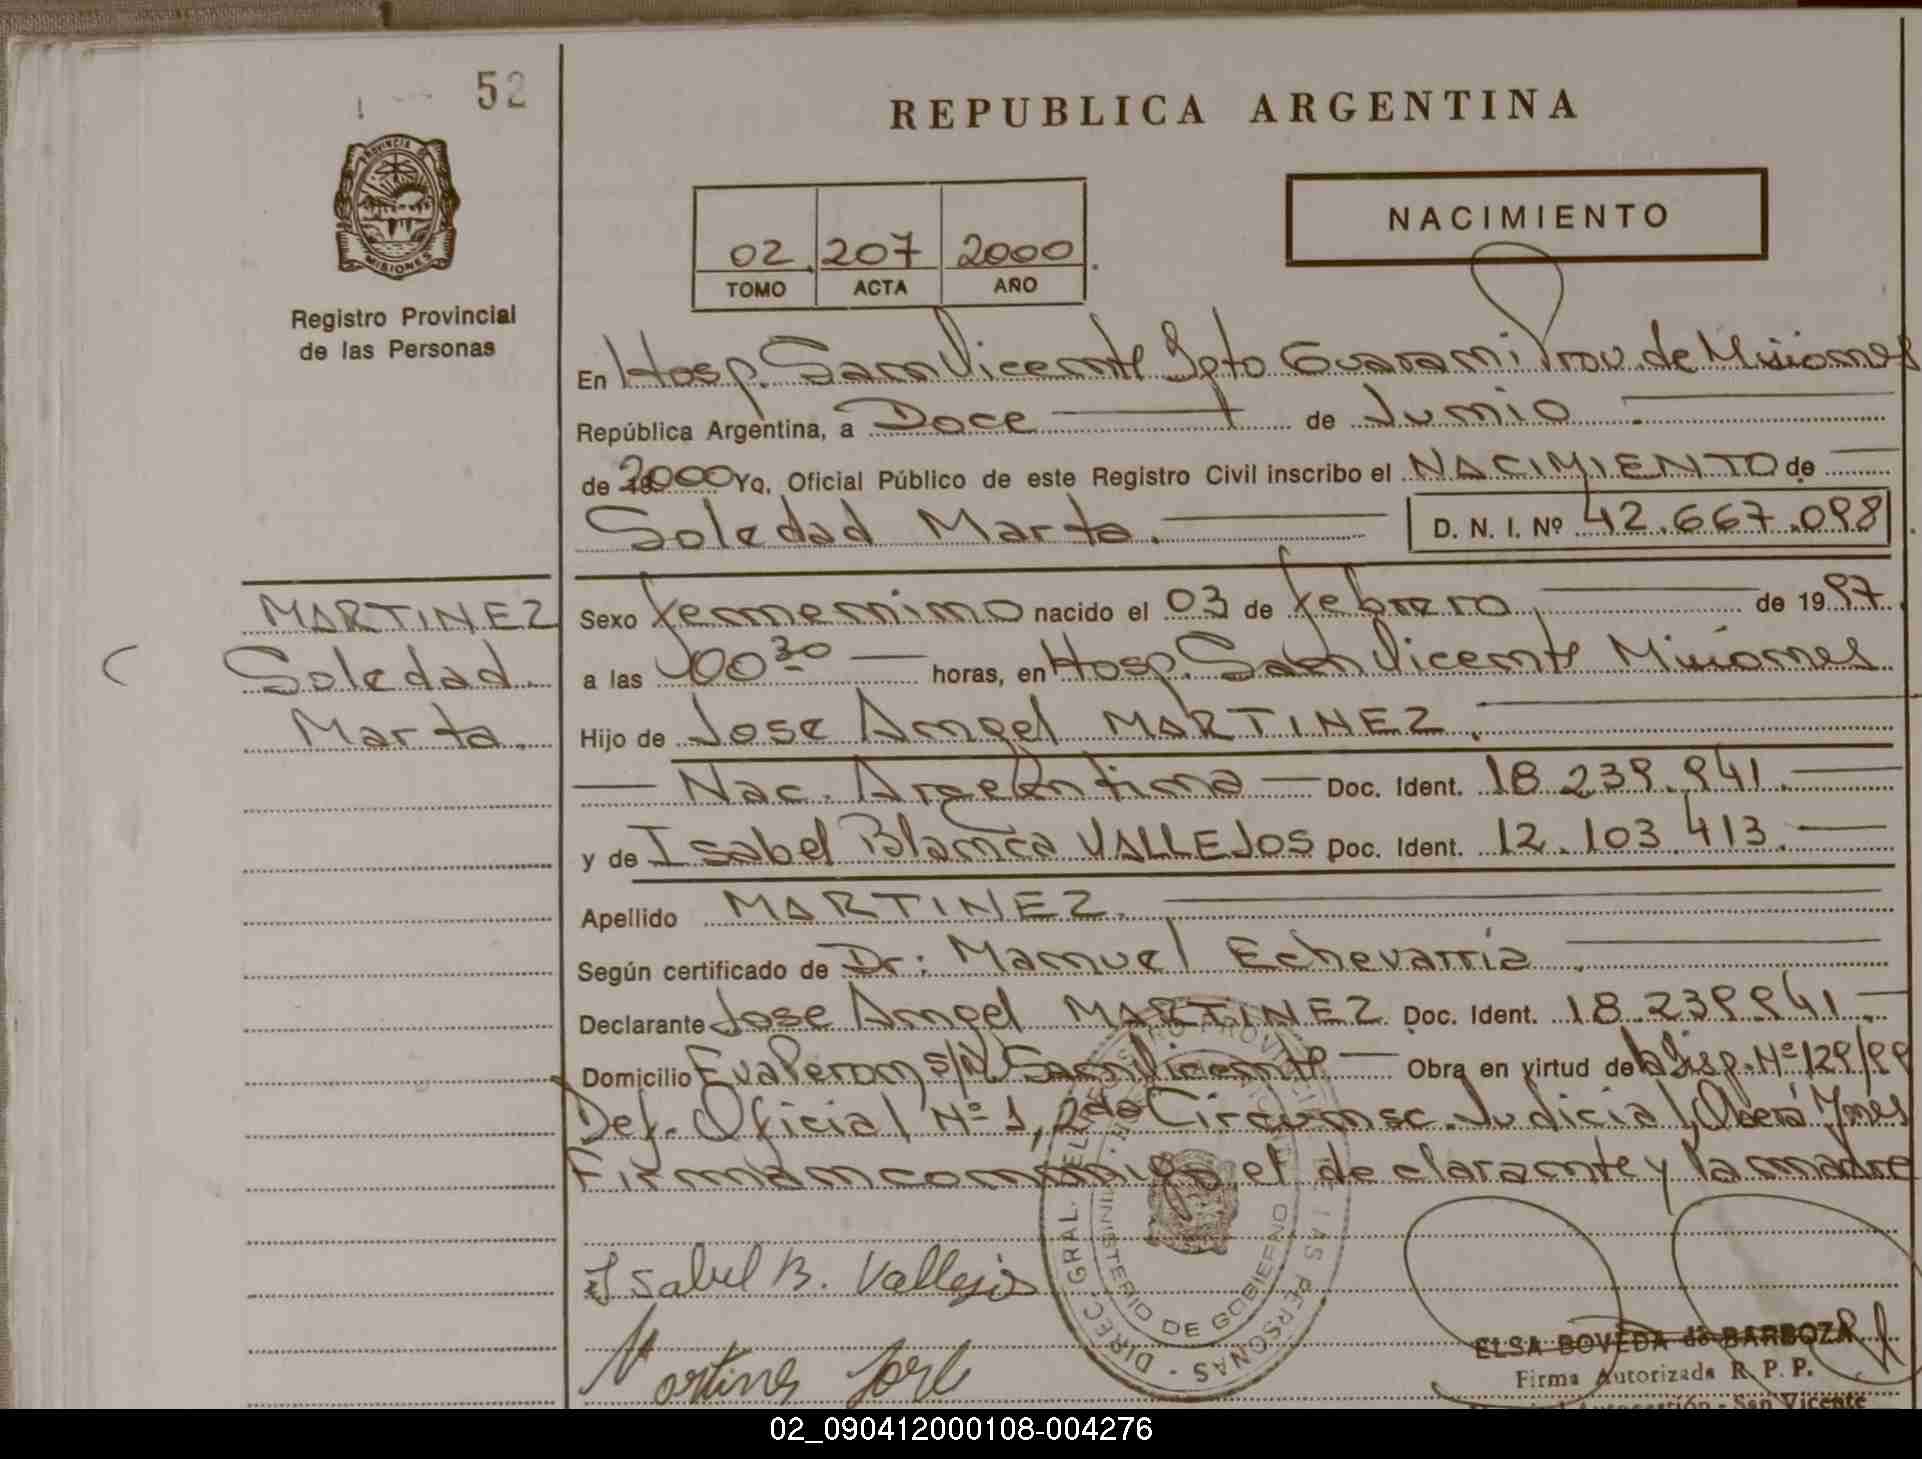 52
REPUBLICA ARGENTINA
PROVINCIA DE
MISIONES
Registro Provincial
de las Personas
NACIMIENTO
02 207 2000
TOMO ACTA AÑO
En Hosp. San Vicente Dpto Guarani Prov. de Misiones
República Argentina, a Doce de Junio
de 2000 Yo, Oficial Público de este Registro Civil inscribo el NACIMIENTO de
Soledad Marta. D. N. I. Nº 42.667.098
MARTINEZ
Soledad
Marta.
Sexo femenino nacido el 03 de febrero de 1997
a las 00 30 horas, en Hosp. San Vicente Misiones
Hijo de Jose Angel MARTINEZ.
Nac. Argentina Doc. Ident. 18.239.941.
y de Isabel Blanca VALLEJOS Doc. Ident. 12.103.413.
Apellido MARTINEZ.
Según certificado de Dr: Manuel Echevarria
Declarante Jose Angel MARTINEZ Doc. Ident. 18.239.941.
Domicilio Eva Peron s/N San Vicente Obra en virtud de la Disp. Nº 129/99
Def. Oficial Nº 1, 2da Circunsc. Judicial, Oberá Mnes
Firman conmigo el declarante y la madre
DIREC. GRAL. DEL REGISTRO PROVINCIAL DE LAS PERSONAS
MINISTERIO DE GOBIERNO
Isabel B. Vallejos
Martines Jose
ELSA BOVEDA de BARBOZA
Firma Autorizada R. P. P.
San Vicente
02_090412000108-004276